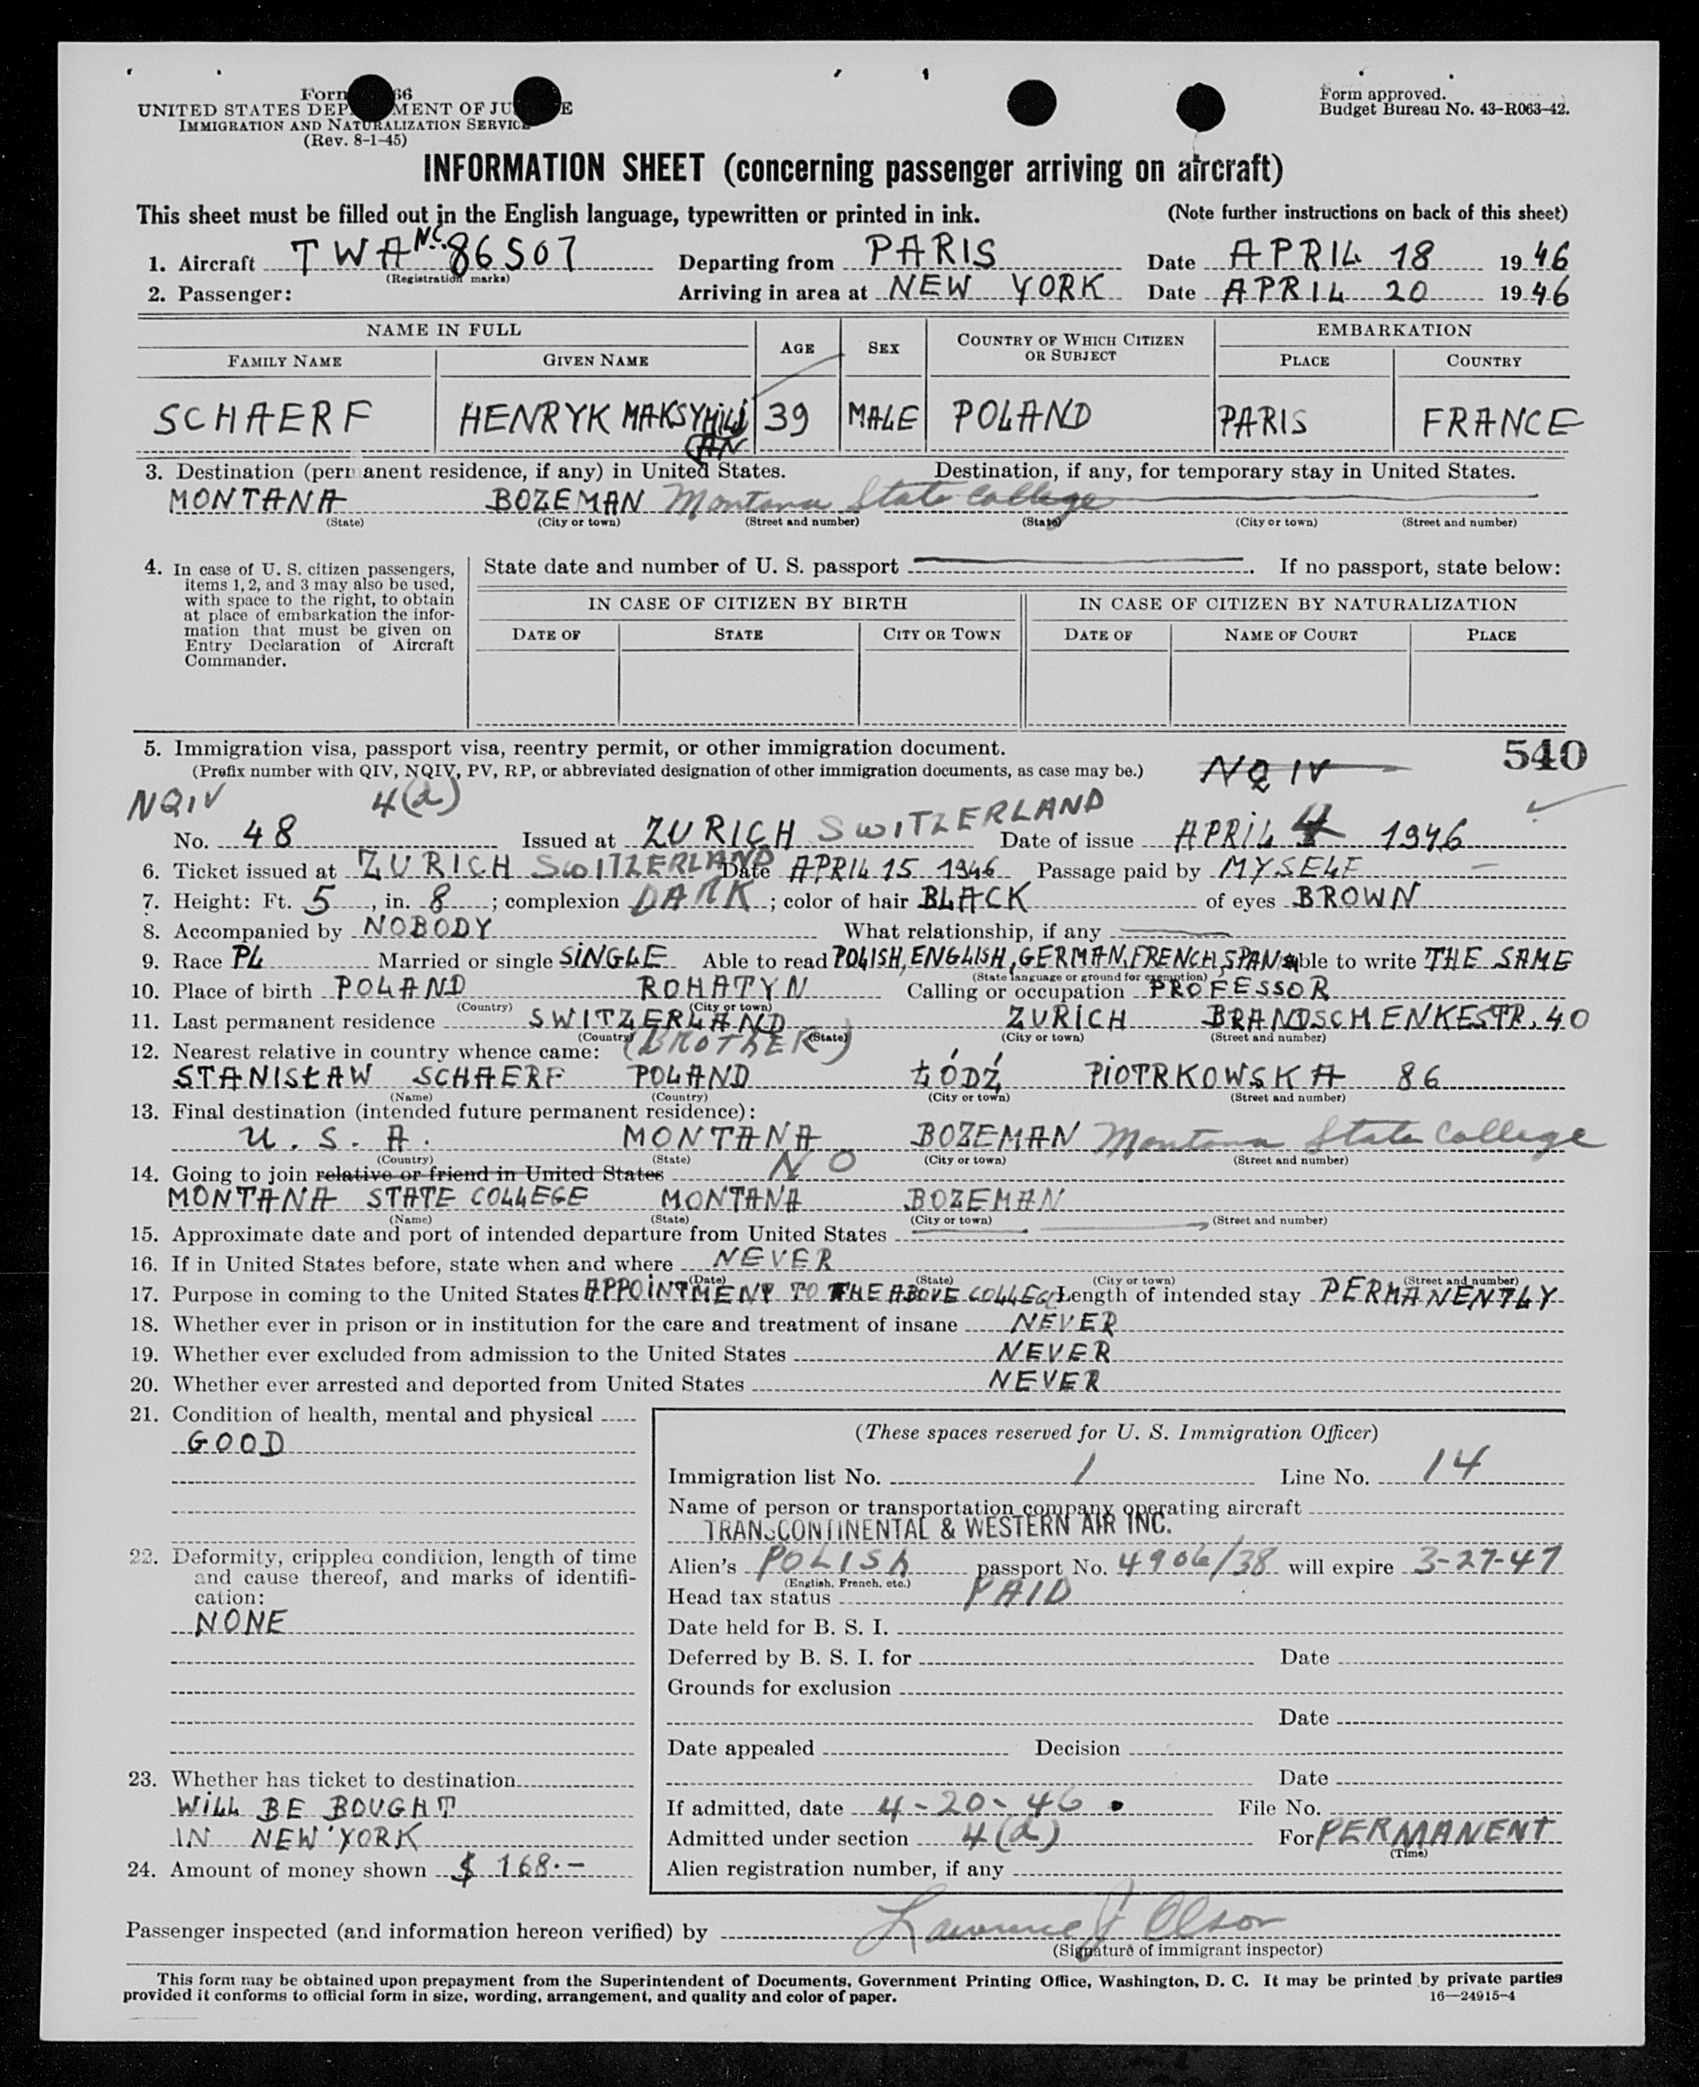 Form 66
UNITED STATES DEP MENT OF JU E
IMMIGRATION AND NATURALIZATION SERVICE
(Rev. 8-1-45)
Form approved.
Budget Bureau No. 43-R063-42.
INFORMATION SHEET (concerning passenger arriving on aircraft)
This sheet must be filled out in the English language, typewritten or printed in ink. (Note further instructions on back of this sheet)
1. Aircraft TWA N.C. 86507 Departing from PARIS Date APRIL 18 1946
(Registration marks)
2. Passenger: Arriving in area at NEW YORK Date APRIL 20 1946
NAME IN FULL AGE SEX COUNTRY OF WHICH CITIZEN OR SUBJECT EMBARKATION
FAMILY NAME GIVEN NAME PLACE COUNTRY
SCHAERF HENRYK MAKSYMILJ 39 MALE POLAND PARIS FRANCE
(AN
3. Destination (permanent residence, if any) in United States. Destination, if any, for temporary stay in United States.
MONTANA BOZEMAN Montana State College
(State) (City or town) (Street and number) (State) (City or town) (Street and number)
4. In case of U. S. citizen passengers, items 1, 2, and 3 may also be used, with space to the right, to obtain at place of embarkation the information that must be given on Entry Declaration of Aircraft Commander.
State date and number of U. S. passport . If no passport, state below:
IN CASE OF CITIZEN BY BIRTH IN CASE OF CITIZEN BY NATURALIZATION
DATE OF STATE CITY OR TOWN DATE OF NAME OF COURT PLACE
5. Immigration visa, passport visa, reentry permit, or other immigration document. 540
(Prefix number with QIV, NQIV, PV, RP, or abbreviated designation of other immigration documents, as case may be.) NQIV
NQIV 4(d)
No. 48 Issued at ZURICH SWITZERLAND Date of issue APRIL 4 1946
6. Ticket issued at ZURICH SWITZERLAND Date APRIL 15 1946 Passage paid by MYSELF
7. Height: Ft. 5, in. 8; complexion DARK; color of hair BLACK of eyes BROWN
8. Accompanied by NOBODY What relationship, if any
9. Race PL Married or single SINGLE Able to read POLISH, ENGLISH, GERMAN, FRENCH, SPAN Able to write THE SAME
(State language or ground for exemption)
10. Place of birth POLAND ROHATYN Calling or occupation PROFESSOR
(Country) (City or town)
11. Last permanent residence SWITZERLAND ZURICH BRANDSCHENKESTR. 40
(Country) (State) (City or town) (Street and number)
12. Nearest relative in country whence came: (BROTHER)
STANISŁAW SCHAERF POLAND ŁÓDŹ PIOTRKOWSKA 86
(Name) (Country) (City or town) (Street and number)
13. Final destination (intended future permanent residence):
U. S. A. MONTANA BOZEMAN Montana State College
(Country) (State) (City or town) (Street and number)
14. Going to join relative or friend in United States NO
MONTANA STATE COLLEGE MONTANA BOZEMAN
(Name) (State) (City or town) (Street and number)
15. Approximate date and port of intended departure from United States
16. If in United States before, state when and where NEVER
(Date) (State) (City or town) (Street and number)
17. Purpose in coming to the United States APPOINTMENT TO THE ABOVE COLLEGE Length of intended stay PERMANENTLY
18. Whether ever in prison or in institution for the care and treatment of insane NEVER
19. Whether ever excluded from admission to the United States NEVER
20. Whether ever arrested and deported from United States NEVER
21. Condition of health, mental and physical
GOOD
22. Deformity, crippled condition, length of time and cause thereof, and marks of identification:
NONE
23. Whether has ticket to destination
WILL BE BOUGHT
IN NEW YORK
24. Amount of money shown $ 168.-
(These spaces reserved for U. S. Immigration Officer)
Immigration list No. 1 Line No. 14
Name of person or transportation company operating aircraft
TRANSCONTINENTAL & WESTERN AIR INC.
Alien's POLISH passport No. 4906/38 will expire 3-27-47
(English, French, etc.)
Head tax status PAID
Date held for B. S. I.
Deferred by B. S. I. for Date
Grounds for exclusion
Date
Date appealed Decision
Date
If admitted, date 4-20-46 File No.
Admitted under section 4(d) For PERMANENT
(Time)
Alien registration number, if any
Passenger inspected (and information hereon verified) by Lawrence J Olson
(Signature of immigrant inspector)
This form may be obtained upon prepayment from the Superintendent of Documents, Government Printing Office, Washington, D. C. It may be printed by private parties
provided it conforms to official form in size, wording, arrangement, and quality and color of paper. 16—24915-4